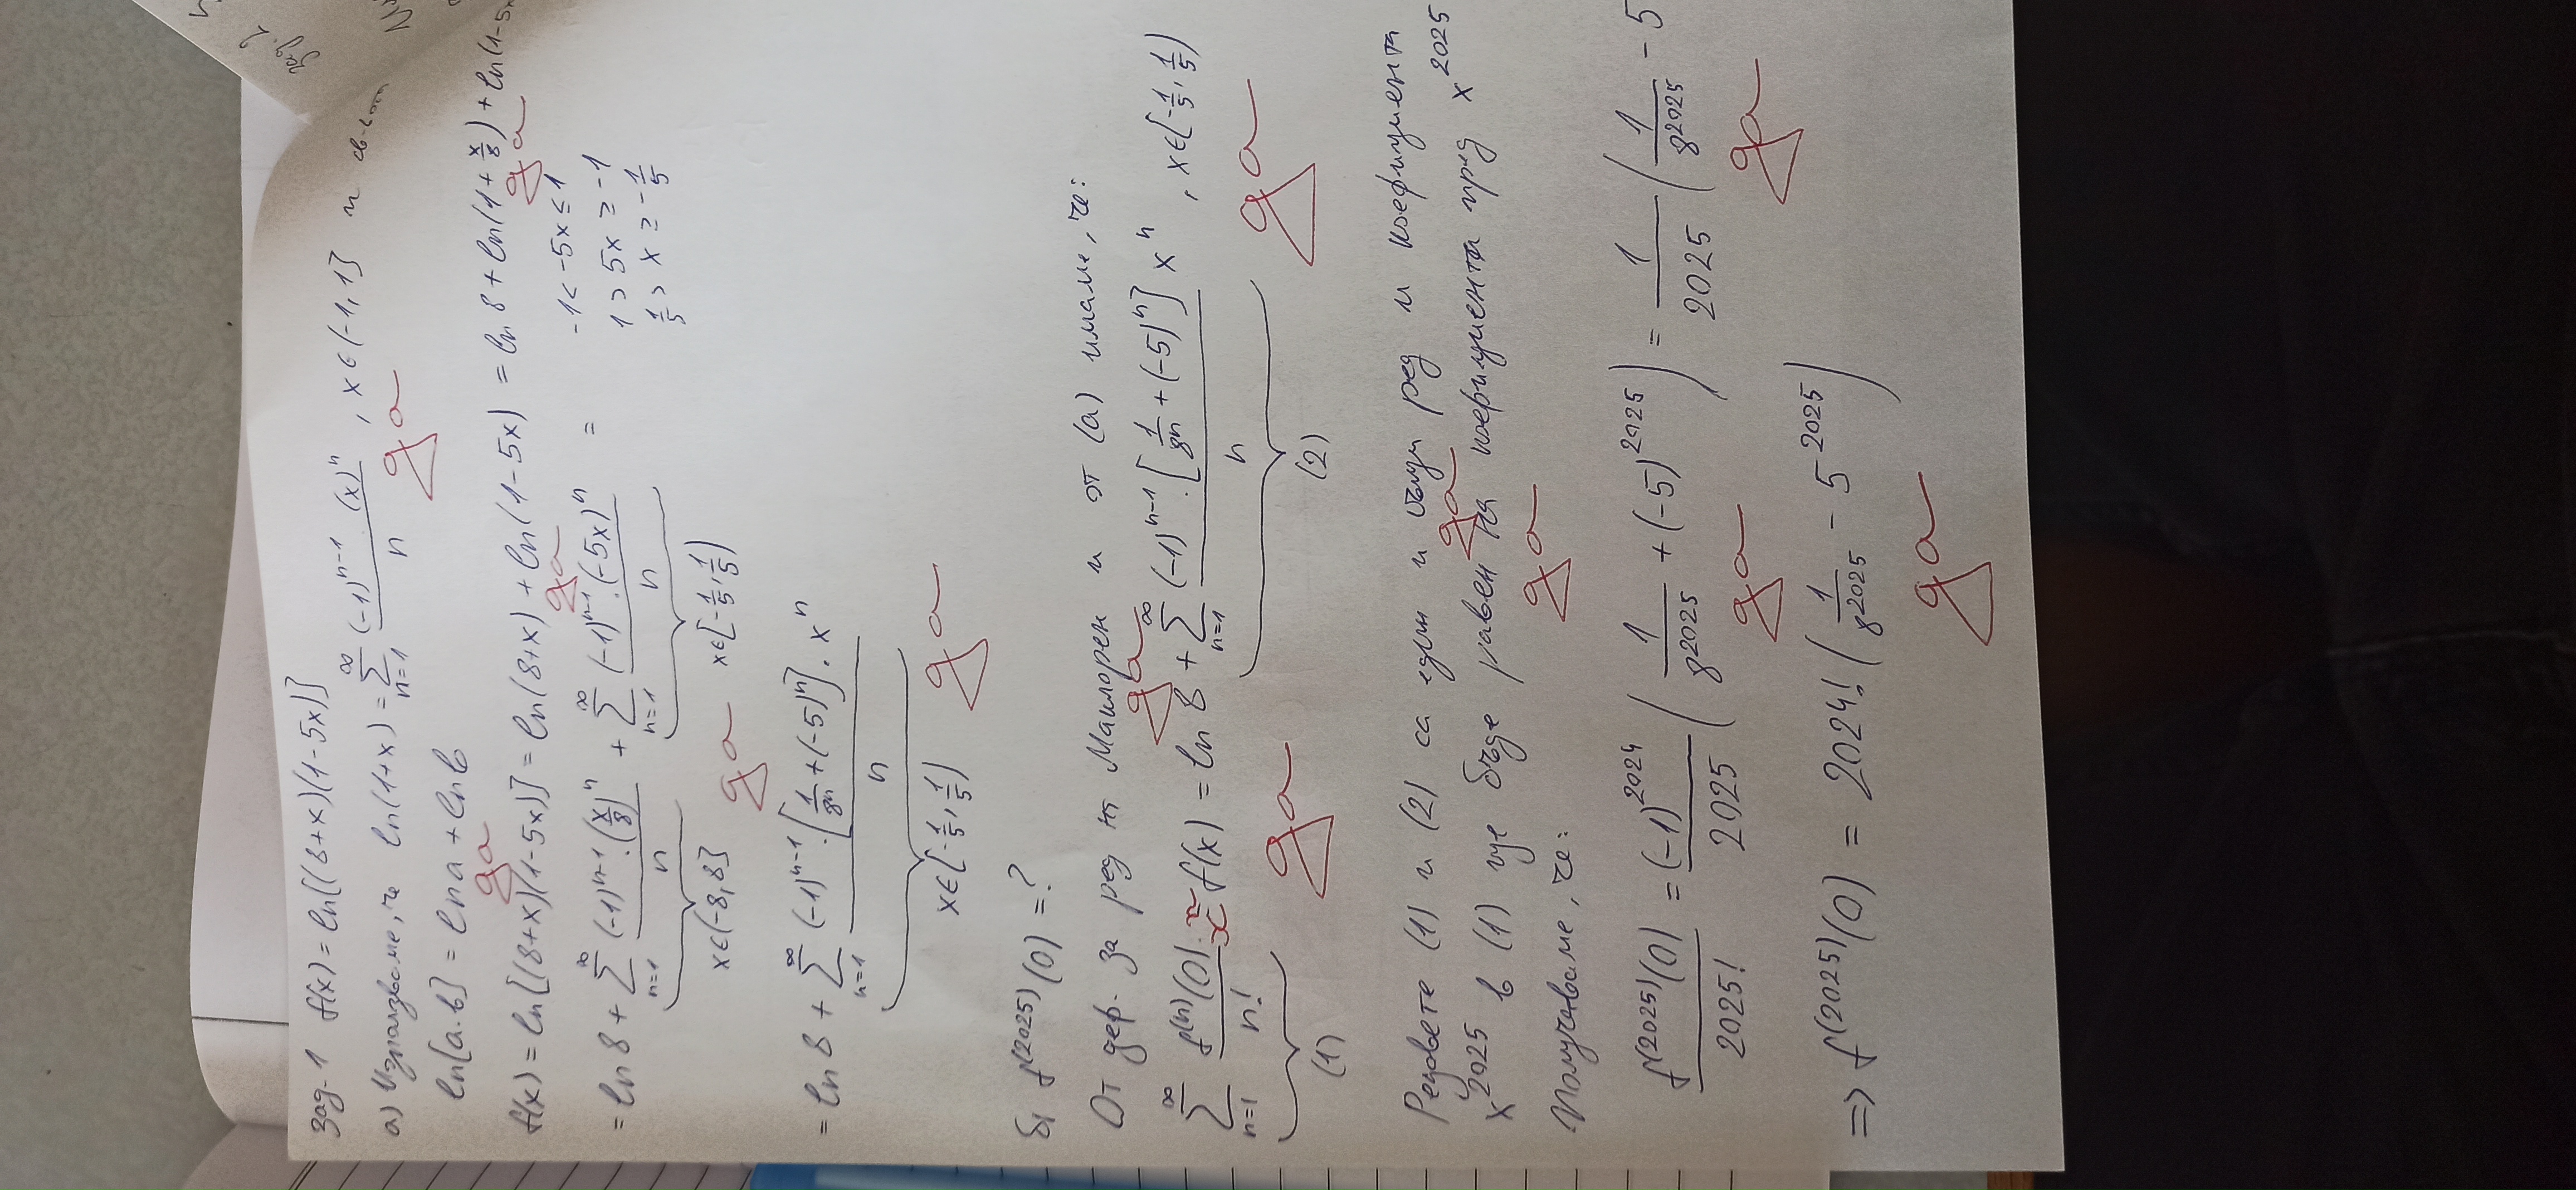 зад. 1 f(x) = ln[(8+x)(1-5x)]
а) Използваме, че ln(1+x) = ∑_{n=1}^{∞} (-1)^{n-1} (x)^n / n , x∈(-1,1] и св-вото
да
ln[a.b] = ln a + ln b
да
f(x) = ln[(8+x)(1-5x)] = ln(8+x) + ln(1-5x) = ln 8 + ln(1+x/8) + ln(1-5x
да да
= ln 8 + ∑_{n=1}^{∞} (-1)^{n-1}.(x/8)^n / n + ∑_{n=1}^{∞} (-1)^{n-1}.(-5x)^n / n =
-1 < -5x ≤ 1
1 > 5x ≥ -1
1/5 > x ≥ -1/5
x∈(-8,8] да x∈[-1/5, 1/5)
= ln 8 + ∑_{n=1}^{∞} (-1)^{n-1}.[1/8^n + (-5)^n].x^n / n
x∈[-1/5, 1/5) да
б) f^{(2025)}(0) = ?
От деф. за ред на Маклорен и от (а) имаме, че:
да
∑_{n=1}^{∞} f^{(n)}(0)/n! . x^n = f(x) = ln 8 + ∑_{n=1}^{∞} (-1)^{n-1}.[1/8^n + (-5)^n] x^n / n , x∈[-1/5, 1/5)
(1) да (2) да
Редовете (1) и (2) са един и същи ред и коефициента
да
x^{2025} в (1) ще бъде равен на коефициента пред x^{2025}
да
Получаваме, че:
f^{(2025)}(0)/2025! = (-1)^{2024}/2025 (1/8^{2025} + (-5)^{2025}) = 1/2025 (1/8^{2025} - 5
да да
=> f^{(2025)}(0) = 2024! (1/8^{2025} - 5^{2025})
да
зад. 2